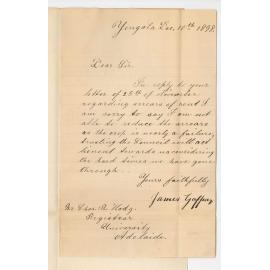 Yongala Dec. 10th 1898.
Dear Sir.
In reply to your
letter of 25th of November
regarding arrears of rent I
am sorry to say I am not
able to reduce the arrears
as the crop is nearly a failure,
trusting the Council will act
lenient towards us considering
the hard times we have gone
through.
Yours faithfully
James Gaffney
Mr Chas. R. Hodge
Registrar
University
Adelaide.